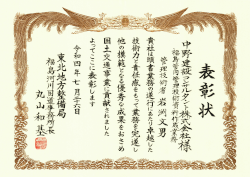 表彰状
中野建設コンサルタント株式会社様
福島管内管理技術資料作成業務
管理技術者 岩渕文男
貴社は頭書業務の遂行にあたり卓越した
技術力と責任感をもって業務を完遂し
他の模範となる優秀な成果をおさめ
国土交通事業に貢献されました
よってここに表彰します
令和四年七月二十六日
東北地方整備局
福島河川国道事務所長
丸山和基